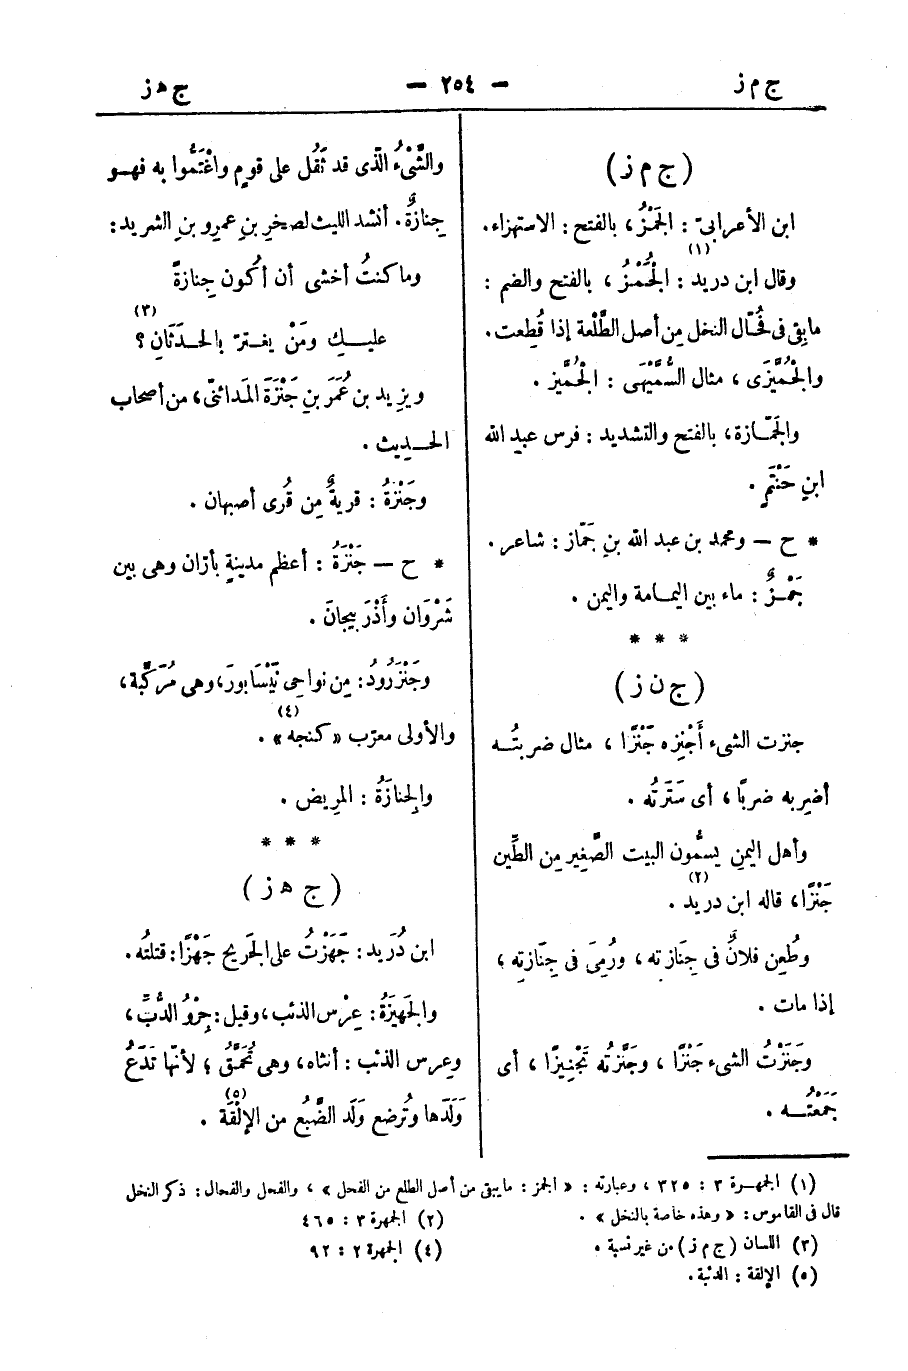 ج م ز
— ٢٥٤ —
ج ه ز
( ج م ز )
ابن الأعرابىّ : الجَمْزُ ، بالفتح : الاستهزاء.
وقال ابن دريد (١) : الجُمْزُ ، بالفتح والضم :
مابقِى فى فُحّال النخل مِن أصل الطَّلْعة إذا قُطِعت.
والجُمَّيْزَى ، مثال السُّمَّيْهَى : الجُمَّيز .
والجَمّازة، بالفتح والتشديد : فرس عبدِ الله
ابنِ حَنْتَمٍ .
* ح — ومحمد بن عبد الله بنِ جَمّاز : شاعر .
جَمْزٌ : ماء بين اليمامة واليمن .
* * *
( ج ن ز )
جنزت الشىء أَجْنِزه جَنْزًا ، مثال ضربتُه
أضرِبه ضربًا ، أى سَتَرتُه .
وأهل اليمنِ يسمُّون البيت الصَّغِير مِن الطِّين
جَنْزًا، قاله ابن دريد (٢) .
وطُعِن فلانٌ فى جِنَازته ، ورُمِىَ فى جِنَازتِه ؛
إذا مات .
وجَنَزْتُ الشىء جَنْزًا ، وجَنَّزتُه تَجْنِيزًا ، أى
جَمَعْتُه .
والشَّىْءُ الّذى قد ثَقُل على قومٍ واغْتَمُّوا به فهو
جِنازةٌ. أنشد الليث لصخرِ بنِ عمرِو بنِ الشريد :
وماكنتُ أخشى أن أكُون جِنازةً
عليكِ ومَنْ يغترّ بالحدَثَانِ (٣) ؟
ويزِيد بن عُمَرَ بنِ جَنْزَةَ المَدائنىّ، مِن أصحاب
الحديث .
وجَنْزةُ : قريةٌ مِن قُرى أصبهان .
* ح — جَنْزَةُ : أعظم مدينةٍ بأرّان وهى بين
شَرْوَان وأَذْرَبيجانَ .
وجَنْزَرُودُ: مِن نواحِى نَيْسَابورَ، وهى مُرَكَّبة،
والأولى معرّب «كنجه» (٤) .
والجِنازَةُ : المرِيض .
* * *
( ج ه ز )
ابن دُرَيد : جَهَزْتُ على الجَرِيح جَهْزًا : قتلتُه.
والجَهِيزَةُ : عِرْس الذئب، وقيل : جِرْوُ الدُّبِّ،
وعرس الذئب : أنثاه، وهى تُحَمَّقُ ؛ لأنّها تَدَعُ
وَلَدَها وتُرضع وَلَد الضَّبُع من الإلْقَة (٥) .
(١) الجمهرة ٣ : ٣٢٥ ، وعبارته : « الجمز : مايبقى من أصل الطلع من الفحل » ، والفحل والفحال : ذكر النخل
قال فى القاموس : « وهذه خاصة بالنخل » .
(٢) الجمهرة ٣ : ٤٦٥
(٣) اللسان (ج م ز) من غير نسبة .
(٤) الجمهرة ٢ : ٩٢
(٥) الإلقة : الذئبة .